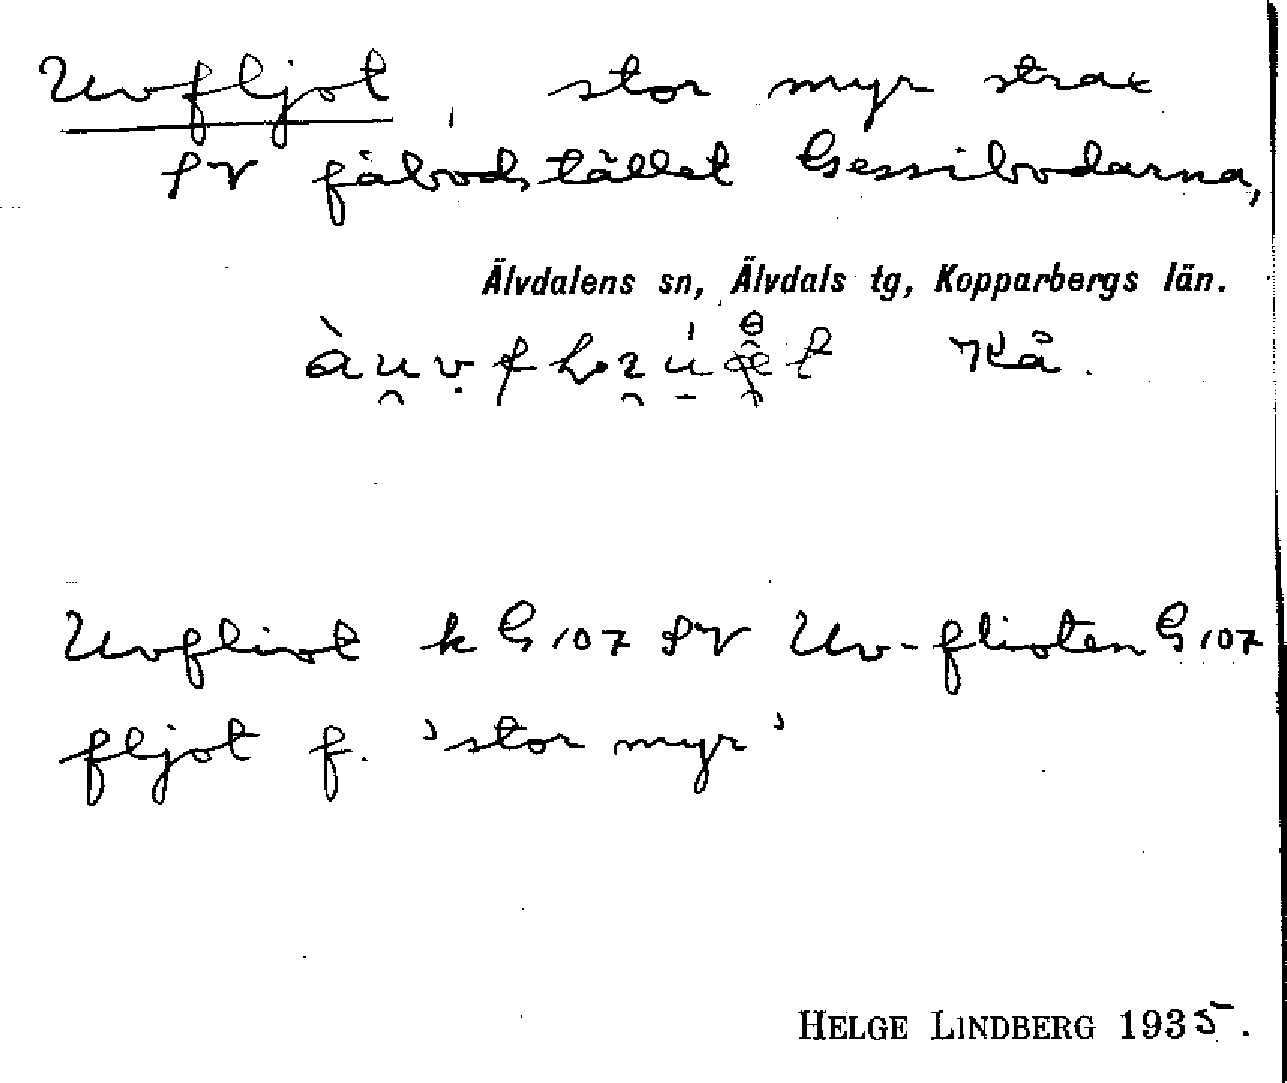 Uvfljot, stor myr strax
SV fäbodstället Gessibodarna,
Älvdalens sn, Älvdals tg, Kopparbergs län.
Kå.
Uvfliot k G 107 SV Uv-flioten G 107
fljot f. 'stor myr'
HELGE LINDBERG 1935.